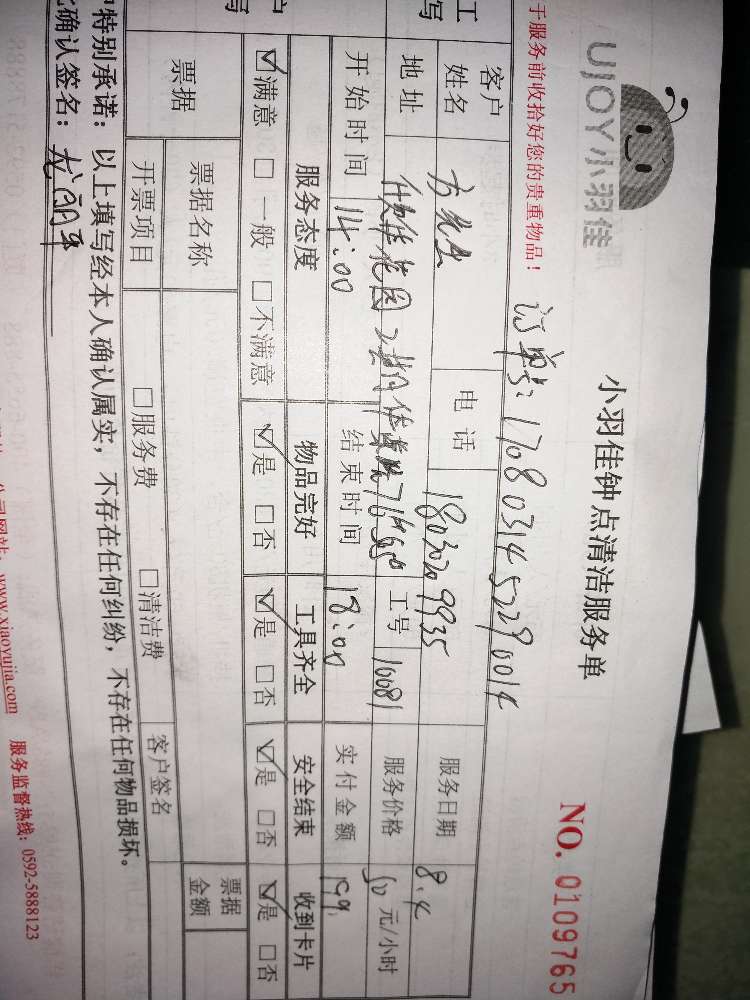 UJOY小羽佳
小羽佳钟点清洁服务单
NO. 0109765
于服务前收拾好您的贵重物品！
订单号：1708031452290014
工
写
客户姓名 方先生 电话 18030209935 服务日期 8.4
地址 花园 工号 10681 服务价格 50 元/小时
开始时间 14:00 结束时间 18:00 实付金额
户
写
服务态度 物品完好 工具齐全 安全结束 收到卡片
☑满意 □一般 □不满意 ☑是 □否 ☑是 □否 ☑是 □否 ☑是 □否
票据 票据名称 票据金额
开票项目 □服务费 □清洁费 客户签名
特别承诺：以上填写经本人确认属实，不存在任何纠纷，不存在任何物品损坏。
确认签名：龙丽平
公司网站：www.xiaoyujia.com 服务监督热线：0592-5888123